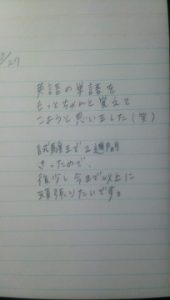 2/27
英語の単語を
もっとちゃんと覚えて
こようと思いました(笑)
試験まで2週間
きったので、
後少し今まで以上に
頑張りたいです。